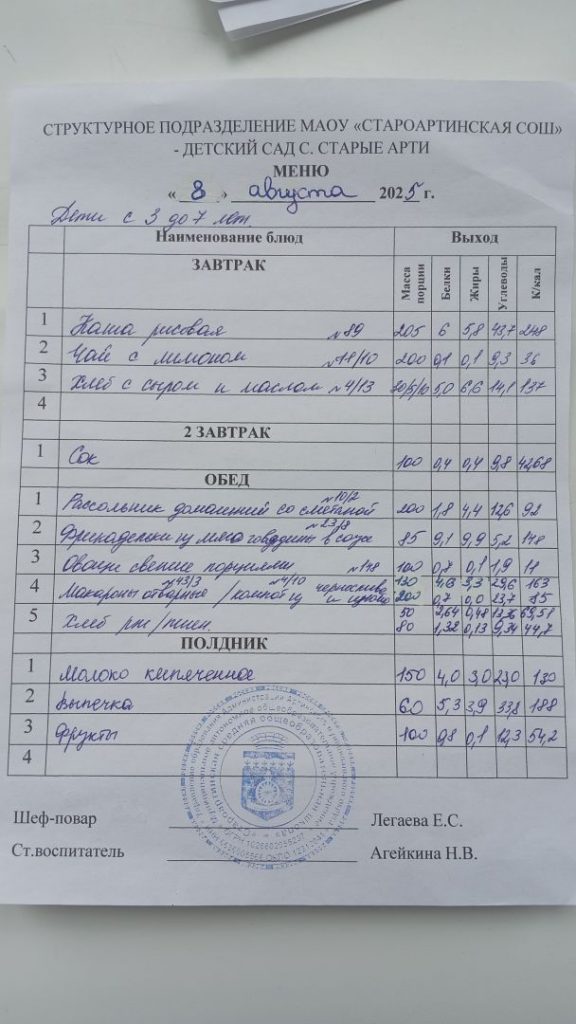 СТРУКТУРНОЕ ПОДРАЗДЕЛЕНИЕ МАОУ «СТАРОАРТИНСКАЯ СОШ»
- ДЕТСКИЙ САД С. СТАРЫЕ АРТИ
МЕНЮ
« 8 » августа 2025 г.
Дети с 3 до 7 лет.
Наименование блюд Выход
ЗАВТРАК Масса порции Белки Жиры Углеводы К/кал
1 Каша рисовая №89 205 6 5,8 43,7 248
2 Чай с лимоном 200 0,1 0,1 9,3 36
3 Хлеб с сыром и маслом №4/13 5,0 6,6 14,1 137
4
2 ЗАВТРАК
1 Сок 100 0,4 0,4 9,8 4268
ОБЕД
1 Рассольник домашний со сметаной №10/2 200 1,8 4,4 12,6 92
2 Фрикадельки из мяса говядины в соусе №23/8 85 9,1 9,9 5,2 148
3 Овощи свежие порциями №148 100 0,7 0,1 1,9 11
4 Макароны отварные №43/3 / компот из чернослива и изюма №4/10 130 3,3 29,6 163
200 0,7 0,0 23,7 85
5 Хлеб рж/пшен 50 2,64 0,48
80 1,32 0,13 9,34 44,7
ПОЛДНИК
1 Молоко кипяченное 150 4,0 3,0 23,0 130
2 Выпечка 60 5,3 3,9 33,8 188
3 Фрукты 100 0,8 0,1 12,3 54,2
4
Шеф-повар Легаева Е.С.
Ст.воспитатель Агейкина Н.В.